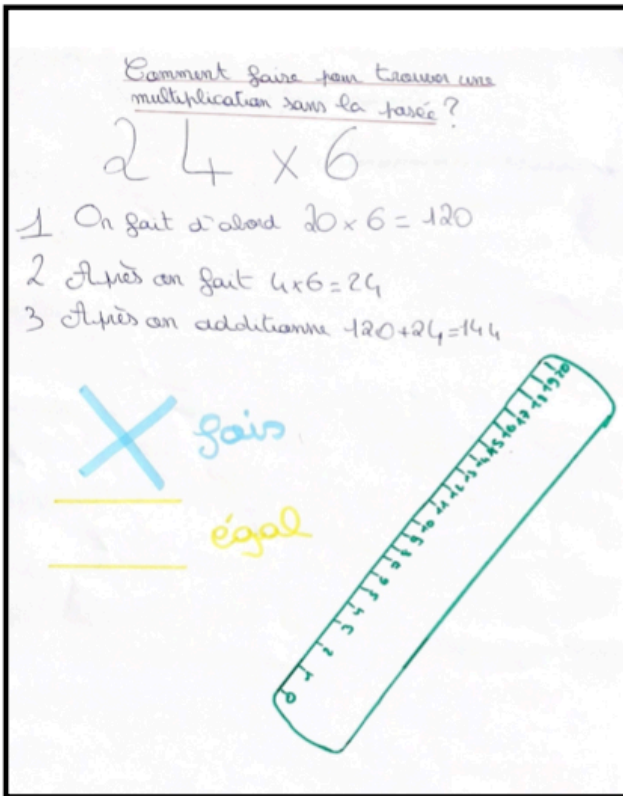 Comment faire pour trouver une
multiplication sans la posée ?
24 × 6
1 On fait d'abord 20 × 6 = 120
2 Après on fait 4×6=24
3 Après on additionne 120+24=144
fois
égal
0 1 2 3 4 5 6 7 8 9 10 11 12 13 14 15 16 17 18 19 20